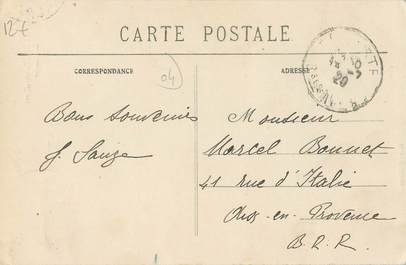 12€
CARTE POSTALE
CORRESPONDANCE
04
ADRESSE
Bons Souvenirs
Monsieur
Marcel Bonnet
41 rue d'Italie
Aix-en-Provence
B. D. R.